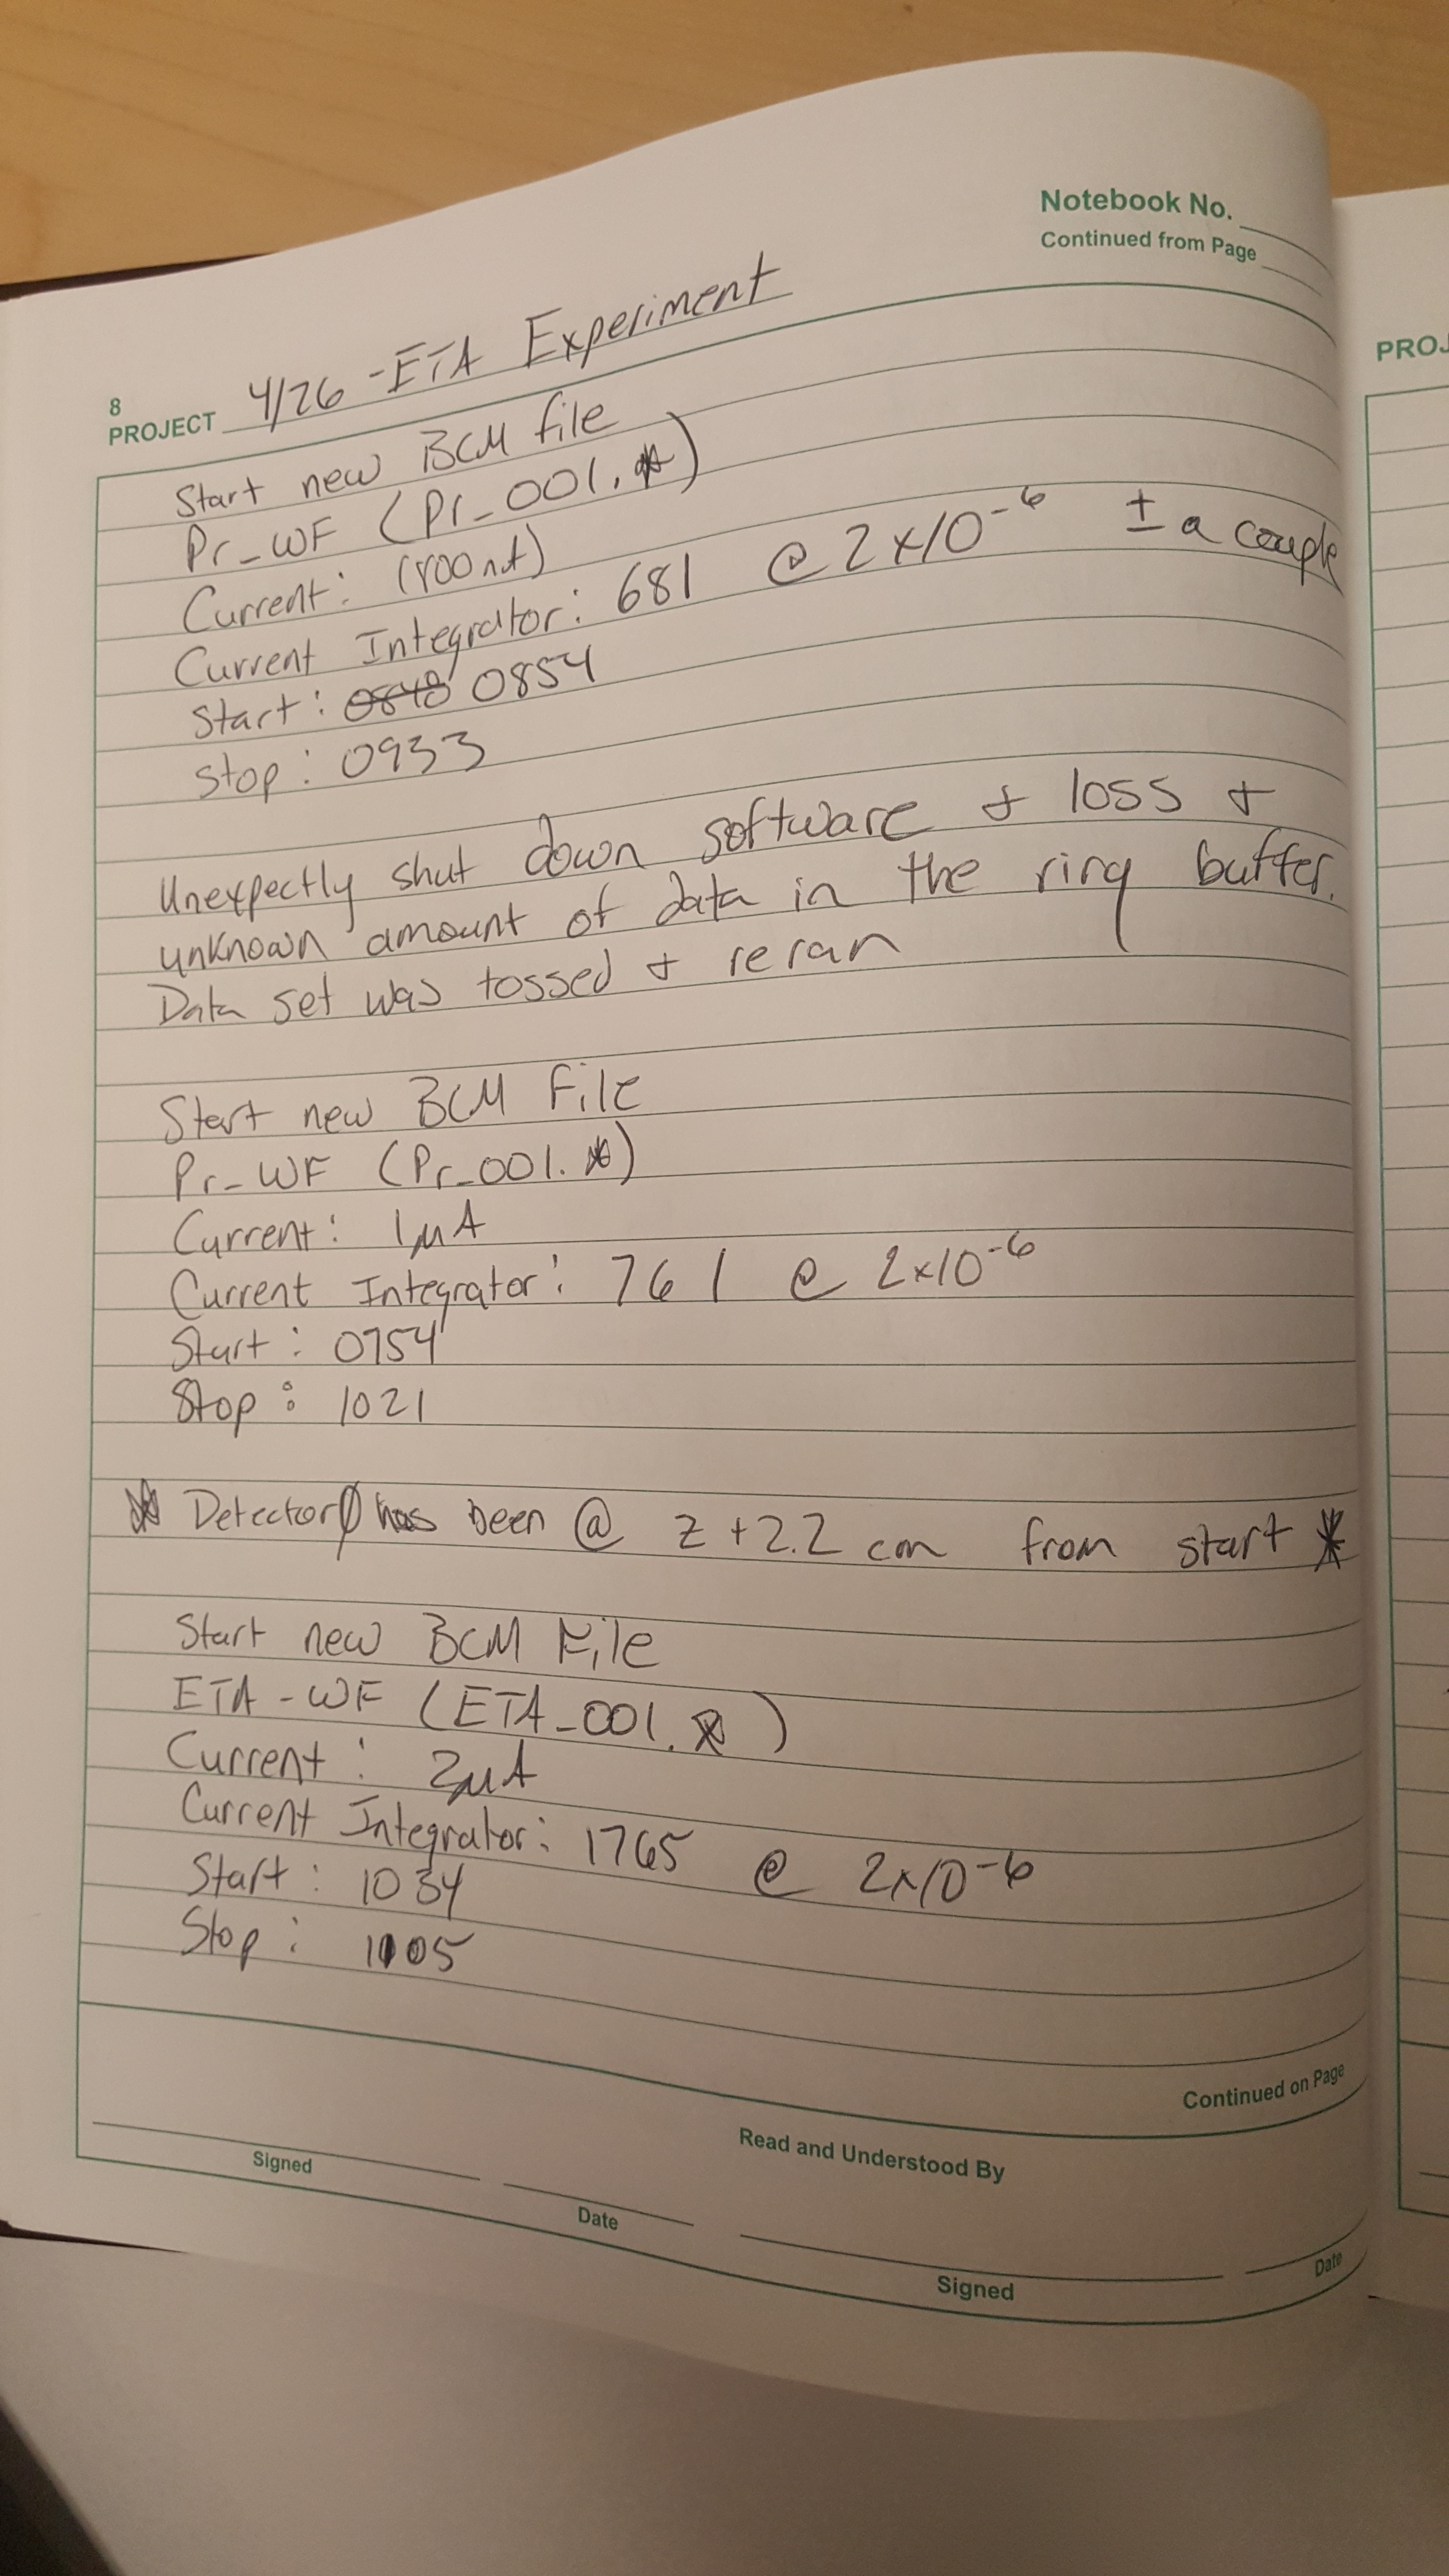 Notebook No.
Continued from Page
8
PROJECT 4/26 - ETA Experiment
Start new BCM file
Pr_WF (Pr_001.*)
Current:
Current Integrator: 681 @ 2x10⁻⁶ ± a couple
Start: 0848 0854
Stop: 0933
Unexpectly shut down software + loss +
unknown amount of data in the ring buffer.
Data set was tossed + reran
Start new BCM File
Pr_WF (Pr_001.*)
Current: 1μA
Current Integrator: 761 @ 2x10⁻⁶
Start: 0754
Stop: 1021
* Detector has been @ z+2.2 cm from start *
Start new BCM File
ETA-WF (ETA_001.*)
Current: 2μA
Current Integrator: 1765 @ 2x10⁻⁶
Start: 1034
Stop: 1105
Continued on Page
Read and Understood By
Signed
Date
Signed
Date
PROJ